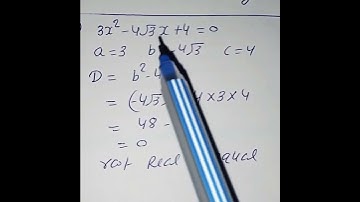 3x² - 4√3x + 4 = 0
a = 3 b - 4√3 c = 4
D = b² - 4
= (-4√3) 4 × 3 × 4
= 48 -
= 0
root Real